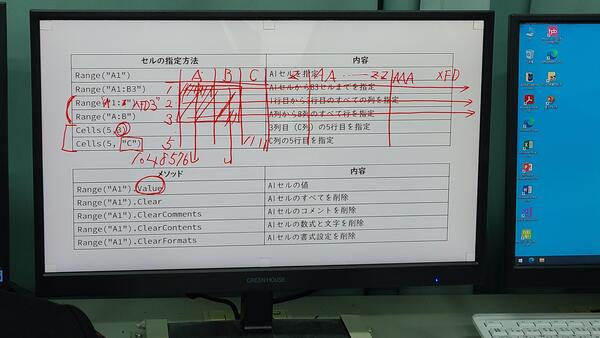 セルの指定方法 内容
Range("A1") A1セルを指定
Range("A1:B3") A1セルからB3セルまでを指定
Range("A1: XFD3") 1行目から3行目のすべての列を指定
Range("A:B") A列からB列のすべて行を指定
Cells(5,3) 3列目（C列）の5行目を指定
Cells(5, "C") C列の5行目を指定
A B C Z AA ZZ AAA XFD
1
2
3
5
1048576
メソッド 内容
Range("A1").Value A1セルの値
Range("A1").Clear A1セルのすべてを削除
Range("A1").ClearComments A1セルのコメントを削除
Range("A1").ClearContents A1セルの数式と文字を削除
Range("A1").ClearFormats A1セルの書式設定を削除
GREEN HOUSE